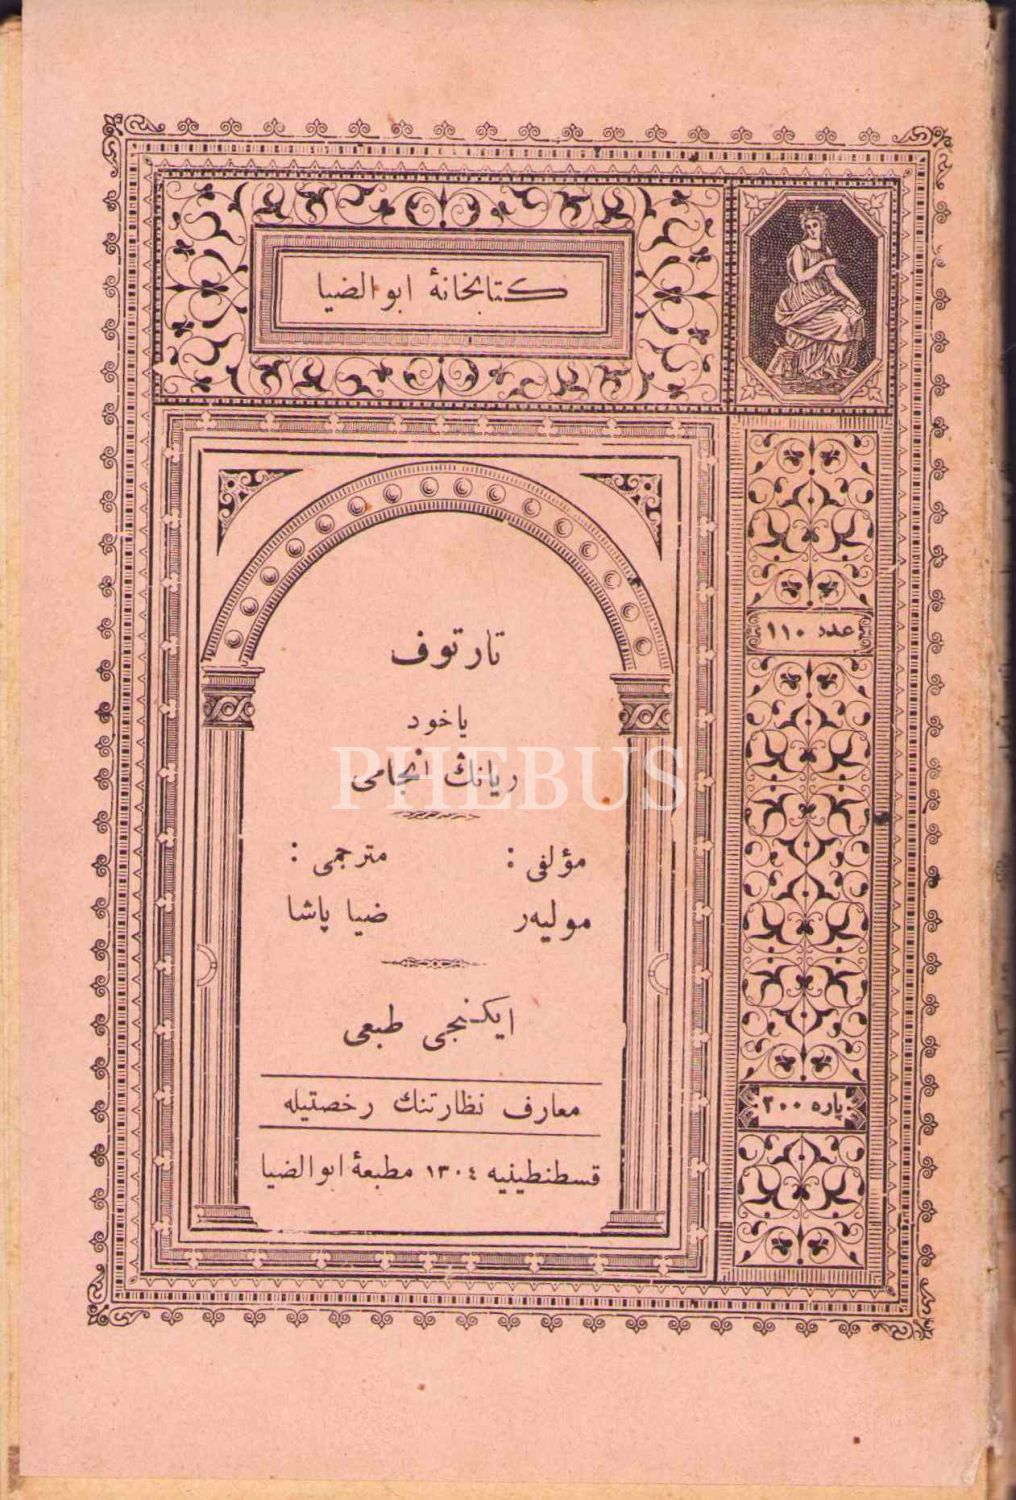 كتابخانهٔ ابوالضيا
عدد ١١٠
تارتوف
ياخود
ريانك انجامى
مؤلفى :
موليەر
مترجمى :
ضيا پاشا
ايكنجى طبعى
معارف نظارتنك رخصتيله
قسطنطينيه ١٣٠٤ مطبعهٔ ابوالضيا
پاره ٢٠٠
PHEBUS